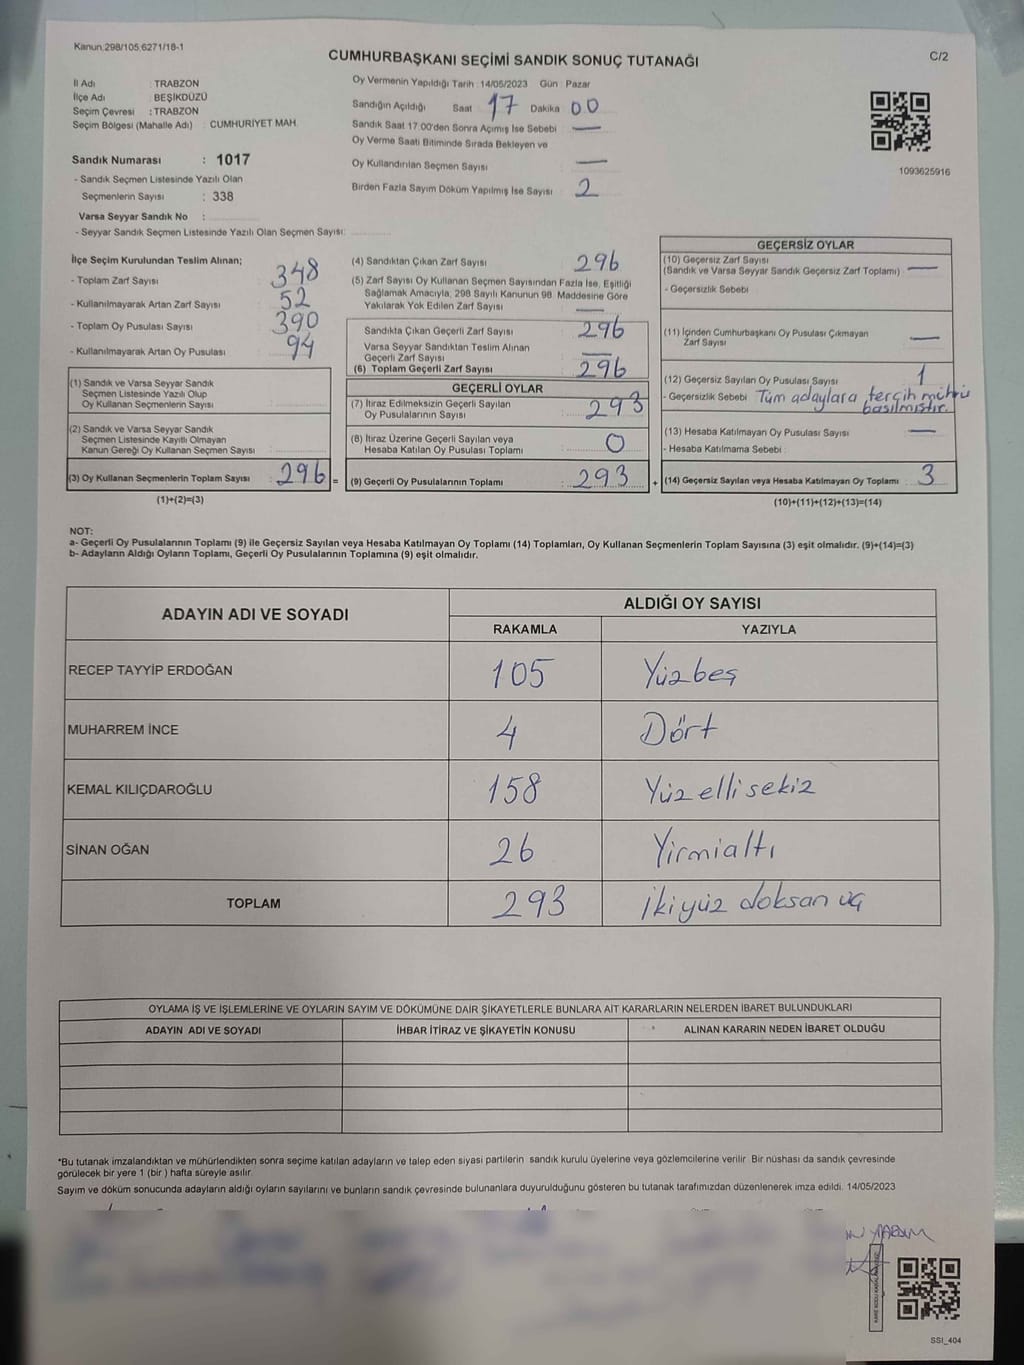 Kanun:298/105;6271/18-1
CUMHURBAŞKANI SEÇİMİ SANDIK SONUÇ TUTANAĞI
C/2
İl Adı : TRABZON
İlçe Adı : BEŞİKDÜZÜ
Seçim Çevresi : TRABZON
Seçim Bölgesi (Mahalle Adı) : CUMHURİYET MAH.
Sandık Numarası : 1017
- Sandık Seçmen Listesinde Yazılı Olan
Seçmenlerin Sayısı : 338
Varsa Seyyar Sandık No :
- Seyyar Sandık Seçmen Listesinde Yazılı Olan Seçmen Sayısı:
Oy Vermenin Yapıldığı Tarih : 14/05/2023 Gün : Pazar
Sandığın Açıldığı Saat 17 Dakika 00
Sandık Saat 17.00'den Sonra Açımış İse Sebebi : —
Oy Verme Saati Bitiminde Sırada Bekleyen ve
Oy Kullandırılan Seçmen Sayısı : —
Birden Fazla Sayım Döküm Yapılmış İse Sayısı : 2
1093625916
İlçe Seçim Kurulundan Teslim Alınan;
- Toplam Zarf Sayısı : 348
- Kullanılmayarak Artan Zarf Sayısı : 52
- Toplam Oy Pusulası Sayısı : 390
- Kullanılmayarak Artan Oy Pusulası : 94
(1) Sandık ve Varsa Seyyar Sandık
Seçmen Listesinde Yazılı Olup
Oy Kullanan Seçmenlerin Sayısı :
(2) Sandık ve Varsa Seyyar Sandık
Seçmen Listesinde Kayıtlı Olmayan
Kanun Gereği Oy Kullanan Seçmen Sayısı :
(3) Oy Kullanan Seçmenlerin Toplam Sayısı : 296 =
(1)+(2)=(3)
(4) Sandıktan Çıkan Zarf Sayısı : 296
(5) Zarf Sayısı Oy Kullanan Seçmen Sayısından Fazla İse, Eşitliği
Sağlamak Amacıyla, 298 Sayılı Kanunun 98. Maddesine Göre
Yakılarak Yok Edilen Zarf Sayısı : —
Sandıkta Çıkan Geçerli Zarf Sayısı : 296
Varsa Seyyar Sandıktan Teslim Alınan
Geçerli Zarf Sayısı : —
(6) Toplam Geçerli Zarf Sayısı : 296
GEÇERLİ OYLAR
(7) İtiraz Edilmeksizin Geçerli Sayılan
Oy Pusulalarının Sayısı : 293
(8) İtiraz Üzerine Geçerli Sayılan veya
Hesaba Katılan Oy Pusulası Toplamı : 0
(9) Geçerli Oy Pusulalarının Toplamı : 293 +
GEÇERSİZ OYLAR
(10) Geçersiz Zarf Sayısı
(Sandık ve Varsa Seyyar Sandık Geçersiz Zarf Toplamı) : —
- Geçersizlik Sebebi :
(11) İçinden Cumhurbaşkanı Oy Pusulası Çıkmayan
Zarf Sayısı : —
(12) Geçersiz Sayılan Oy Pusulası Sayısı : 1
- Geçersizlik Sebebi : Tüm adaylara tercih mührü
basılmıştır.
(13) Hesaba Katılmayan Oy Pusulası Sayısı : —
- Hesaba Katılmama Sebebi :
(14) Geçersiz Sayılan veya Hesaba Katılmayan Oy Toplamı : 3
(10)+(11)+(12)+(13)=(14)
NOT:
a- Geçerli Oy Pusulalarının Toplamı (9) ile Geçersiz Sayılan veya Hesaba Katılmayan Oy Toplamı (14) Toplamları, Oy Kullanan Seçmenlerin Toplam Sayısına (3) eşit olmalıdır. (9)+(14)=(3)
b- Adayların Aldığı Oyların Toplamı, Geçerli Oy Pusulalarının Toplamına (9) eşit olmalıdır.
ADAYIN ADI VE SOYADI
ALDIĞI OY SAYISI
RAKAMLA YAZIYLA
RECEP TAYYİP ERDOĞAN 105 Yüzbeş
MUHARREM İNCE 4 Dört
KEMAL KILIÇDAROĞLU 158 Yüzellisekiz
SİNAN OĞAN 26 Yirmialtı
TOPLAM 293 ikiyüz doksan üç
OYLAMA İŞ VE İŞLEMLERİNE VE OYLARIN SAYIM VE DÖKÜMÜNE DAİR ŞİKAYETLERLE BUNLARA AİT KARARLARIN NELERDEN İBARET BULUNDUKLARI
ADAYIN ADI VE SOYADI İHBAR İTİRAZ VE ŞİKAYETİN KONUSU ALINAN KARARIN NEDEN İBARET OLDUĞU
*Bu tutanak imzalandıktan ve mühürlendikten sonra seçime katılan adayların ve talep eden siyasi partilerin sandık kurulu üyelerine veya gözlemcilerine verilir. Bir nüshası da sandık çevresinde
görülecek bir yere 1 (bir) hafta süreyle asılır.
Sayım ve döküm sonucunda adayların aldığı oyların sayılarını ve bunların sandık çevresinde bulunanlara duyurulduğunu gösteren bu tutanak tarafımızdan düzenlenerek imza edildi. 14/05/2023
SSI_404